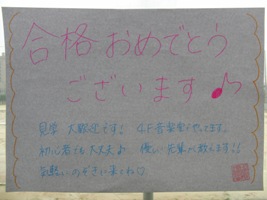 合格おめでとう
ございます♪
見学 大歓迎です! 4F音楽室でやってます。
初心者でも大丈夫♪ 優しい先輩が教えます!!
気軽にのぞきに来てね♡